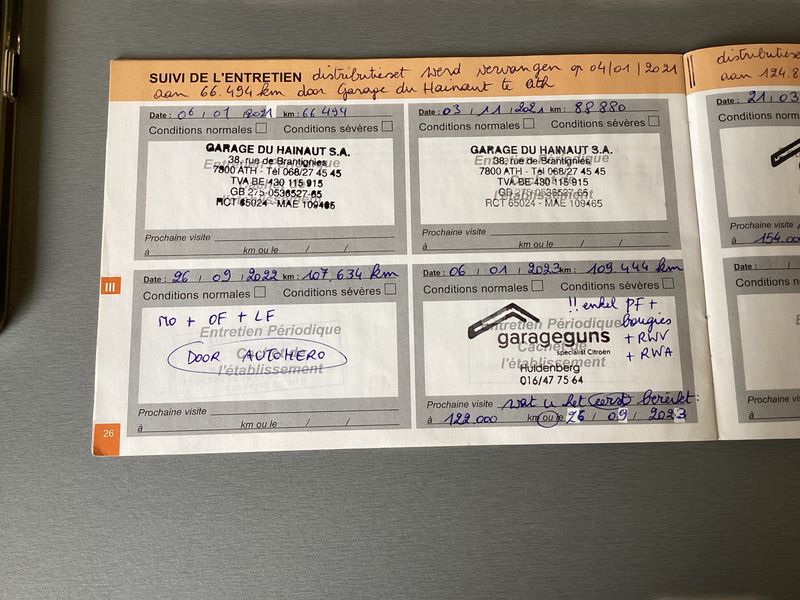 SUIVI DE L'ENTRETIEN distributieset werd vervangen op 04/01/2021
aan 66.494 km door Garage du Hainaut te Ath
Date : 06 / 01 / 2021 km : 66 494
Conditions normales Conditions sévères
Entretien Périodique
Cachet de
l'établissement
GARAGE DU HAINAUT S.A.
38, rue de Brantignies
7800 ATH - Tél 068/27 45 45
TVA BE 430 115 915
GB 275-0536527-65
RCT 65024 - MAE 109465
Prochaine visite
à km ou le / /
Date : 03 / 11 / 2021 km : 88 880
Conditions normales Conditions sévères
Entretien Périodique
Cachet de
l'établissement
GARAGE DU HAINAUT S.A.
38, rue de Brantignies
7800 ATH - Tél 068/27 45 45
TVA BE 430 115 915
GB 275-0536527-65
RCT 65024 - MAE 109465
Prochaine visite
à km ou le / /
III
Date : 26 / 09 / 2022 km : 107.634 km
Conditions normales Conditions sévères
MO + OF + LF
Entretien Périodique
Cachet de
l'établissement
DOOR AUTOHERO
Prochaine visite
à km ou le / /
Date : 06 / 01 / 2023 km : 109.444 km
Conditions normales Conditions sévères
!! enkel PF +
bougies
+ RWV
+ RWA
Entretien Périodique
Cachet de
l'établissement
garageguns
specialist Citroën
Huldenberg
016/47 75 64
Prochaine visite wat u het eerst bereikt:
à 122.000 km ou le 26 / 09 / 2023
26
distributieset
aan 124.8
Date : 21 / 03
Conditions normales
Prochaine visite
à 154.00
Date : /
Conditions norm
Prochaine visite
à